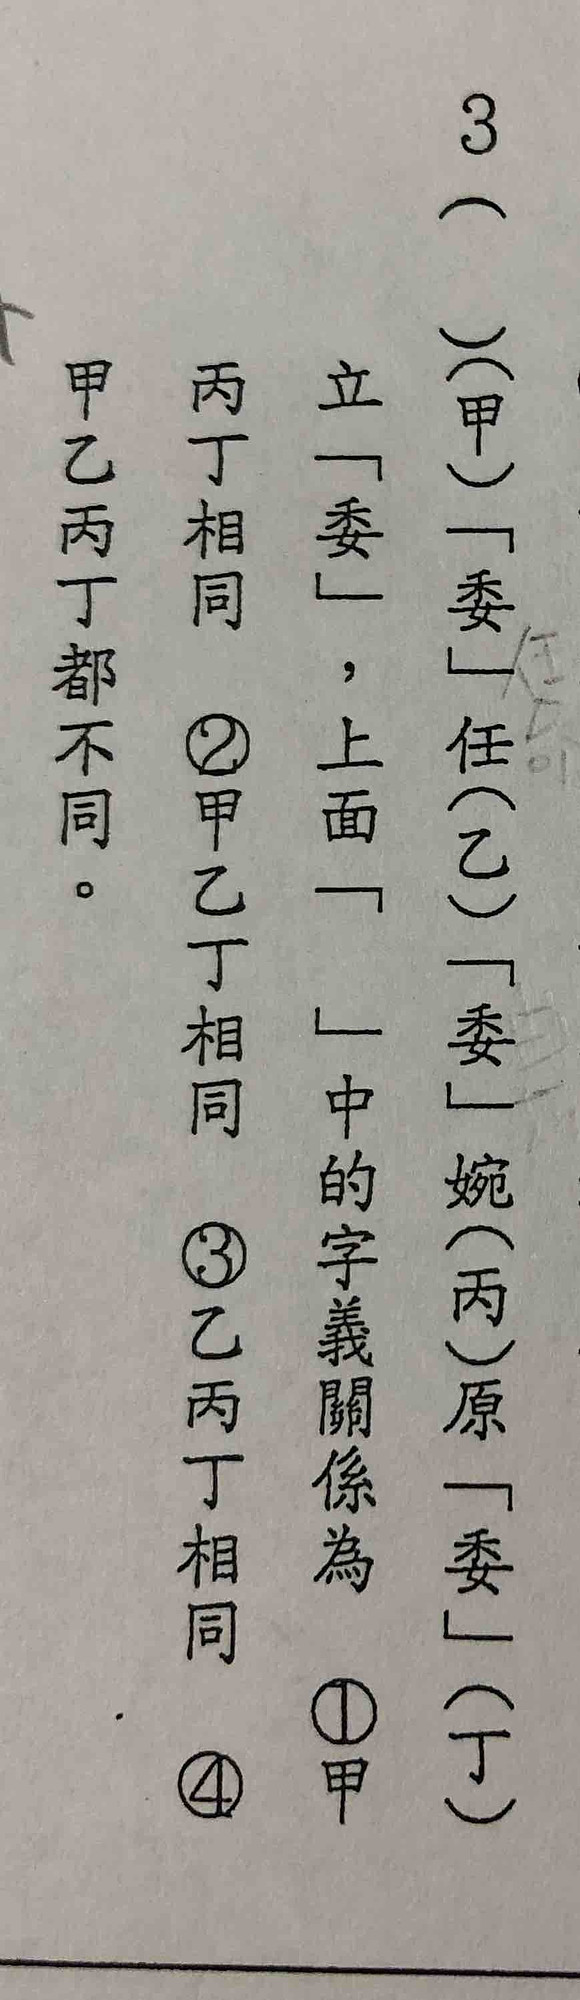 3（　）（甲）「委」任（乙）「委」婉（丙）原「委」（丁）
立「委」，上面「　」中的字義關係為　①甲
丙丁相同　②甲乙丁相同　③乙丙丁相同　④
甲乙丙丁都不同。